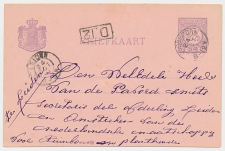 BRIEFKAART
D 12
Den Weledelen Heer
Van de Pavord Smits
Secretaris der afdeeling Leiden
en Amstreken van de
Nederlandsche maatschappij
voor Tuinbouw en plantkunde
te Leiden